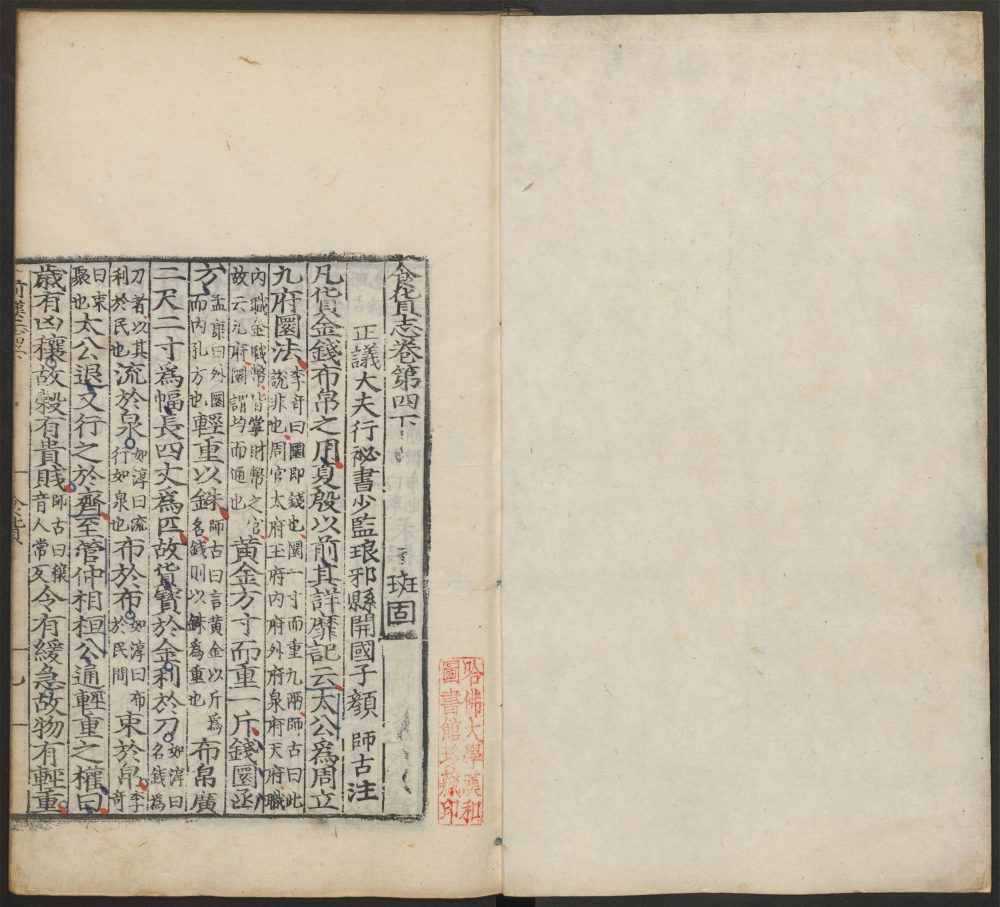 食貨志卷第四下 班固
正議大夫行祕書少監琅邪縣開國子顏 師古 注
凡貨金錢布帛之用夏殷以前其詳靡記云太公爲周立
九府圜法李奇曰圜即錢也圜一寸而重九兩師古曰此說非也周官太府王府內府外府泉府天府職
內職金職幣皆掌財幣之官故云九府圜謂均而通也黃金方寸而重一斤錢圜函
方孟康曰外圜而內孔方也輕重以銖師古曰言黃金以斤爲名錢則以銖爲重也布帛廣
二尺二寸爲幅長四丈爲匹故貨寶於金利於刀如淳曰名錢爲
刀者以其利於民也流於泉如淳曰流行如泉也布於布如淳曰布於民間束於帛李奇
曰束聚也太公退又行之於齊至管仲相桓公通輕重之權曰
歲有凶穰故穀有貴賤師古曰穰音人常反令有緩急故物有輕重
哈佛大學漢和
圖書館珍藏印